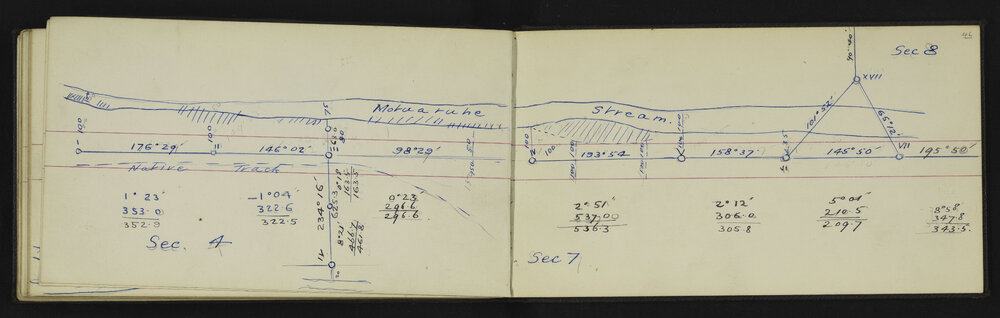 Motuaruhe
176°29'
146°02'
98°29'
Native Track
1° 23'
353.0
352.9
-1°04'
322.6
322.5
234°16'
0°23'
296.6
296.6
Sec. 4
46
Sec 8
XVII
Stream.
101°52'
65°12'
VII
193°54
158°37'
145°50'
195°50'
2°51'
537.00
536.3
2°12'
306.0
305.8
5°04'
210.5
209.7
8°58'
347.8
343.5.
Sec 7